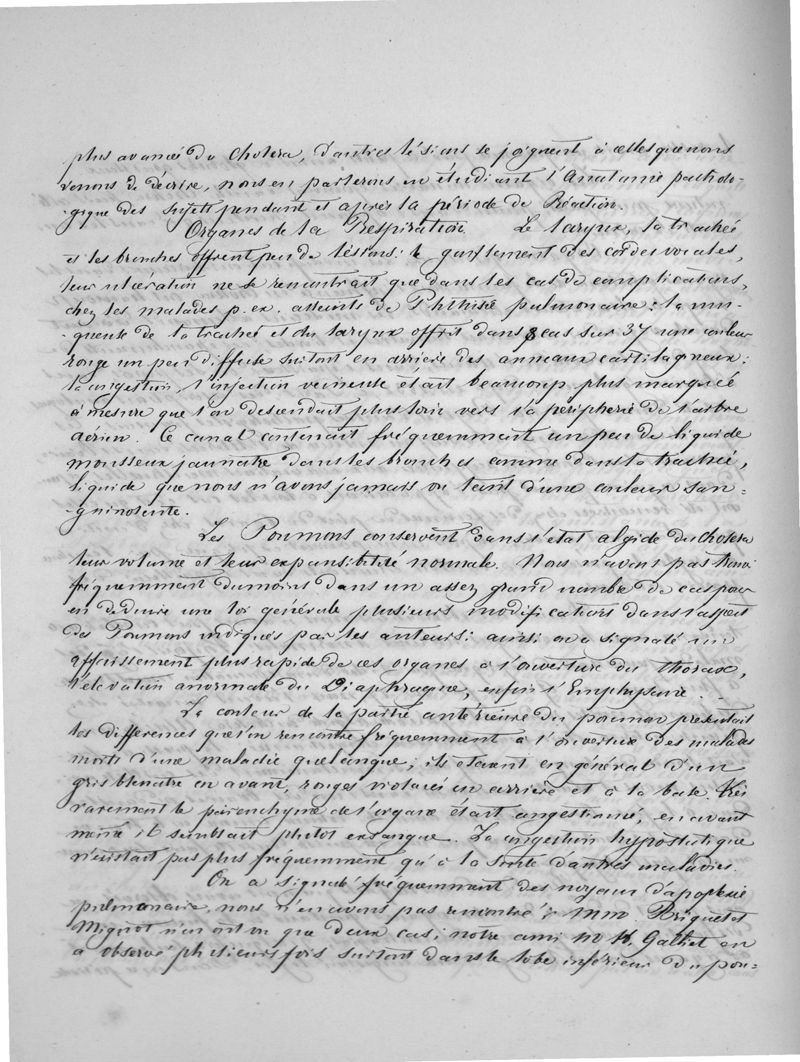 plus avancée du Choléra, d'autres lésions se joignent à celles que nous
venons de décrire, nous en parlerons en étudiant l'Anatomie patholo-
-gique des sujets pendant et après la période de Réaction.
Organes de la Respiration Le larynx, la trachée
et les bronches offrent peu de lésions: le gonflement des cordes vocales,
leur ulcération ne se rencontrait que dans les cas de complications,
chez les malades p. ex. atteints de Phthisie pulmonaire: la mu-
-queuse de la trachée et du larynx offrit dans 8 cas sur 37 une couleur
rouge un peu diffuse surtout en arrière des anneaux cartilagineux:
la congestion, l'injection veineuse était beaucoup plus marquée
à mesure que l'on descendait plus loin vers la périphérie de l'arbre
aérien. Ce canal contenait fréquemment un peu de liquide
mousseux jaunatre dans les bronches comme dans la trachée,
liquide que nous n'avons jamais vu teint d'une couleur san-
-guinolente.
Les Poumons conservent dans l'état algide du Choléra
leur volume et leur expansibilité normale. Nous n'avons pas trouvé
fréquemment du moins dans un assez grand nombre de cas pour
en déduire une loi générale plusieurs modifications dans l'aspect
des Poumons indiqués par les auteurs: ainsi on a signalé un
affaissement plus rapide de ces organes à l'ouverture du thorax,
l'élévation anormale du Diaphragme, enfin l'Emphysème.
La couleur de la partie antérieure du poumon présentait
les différences que l'on rencontre fréquemment à l'ouverture des malades
morts d'une maladie quelconque; ils étaient en général d'un
gris bleuatre en avant, rouges violacés en arrière et à la base. Très
rarement le parenchyme de l'organe était congestionné, en avant
même il semblait plutot exsangue. La congestion hypostatique
n'existait pas plus fréquemment qu'à la suite d'autres maladies.
On a signalé fréquemment des noyaux d'apoplexie
pulmonaire, nous n'en avons pas rencontré; MM. Briquet et
Mignot n'en ont vu que deux cas; notre ami M. H. Galliet en
a observé plusieurs fois surtout dans le lobe inférieur du pou-